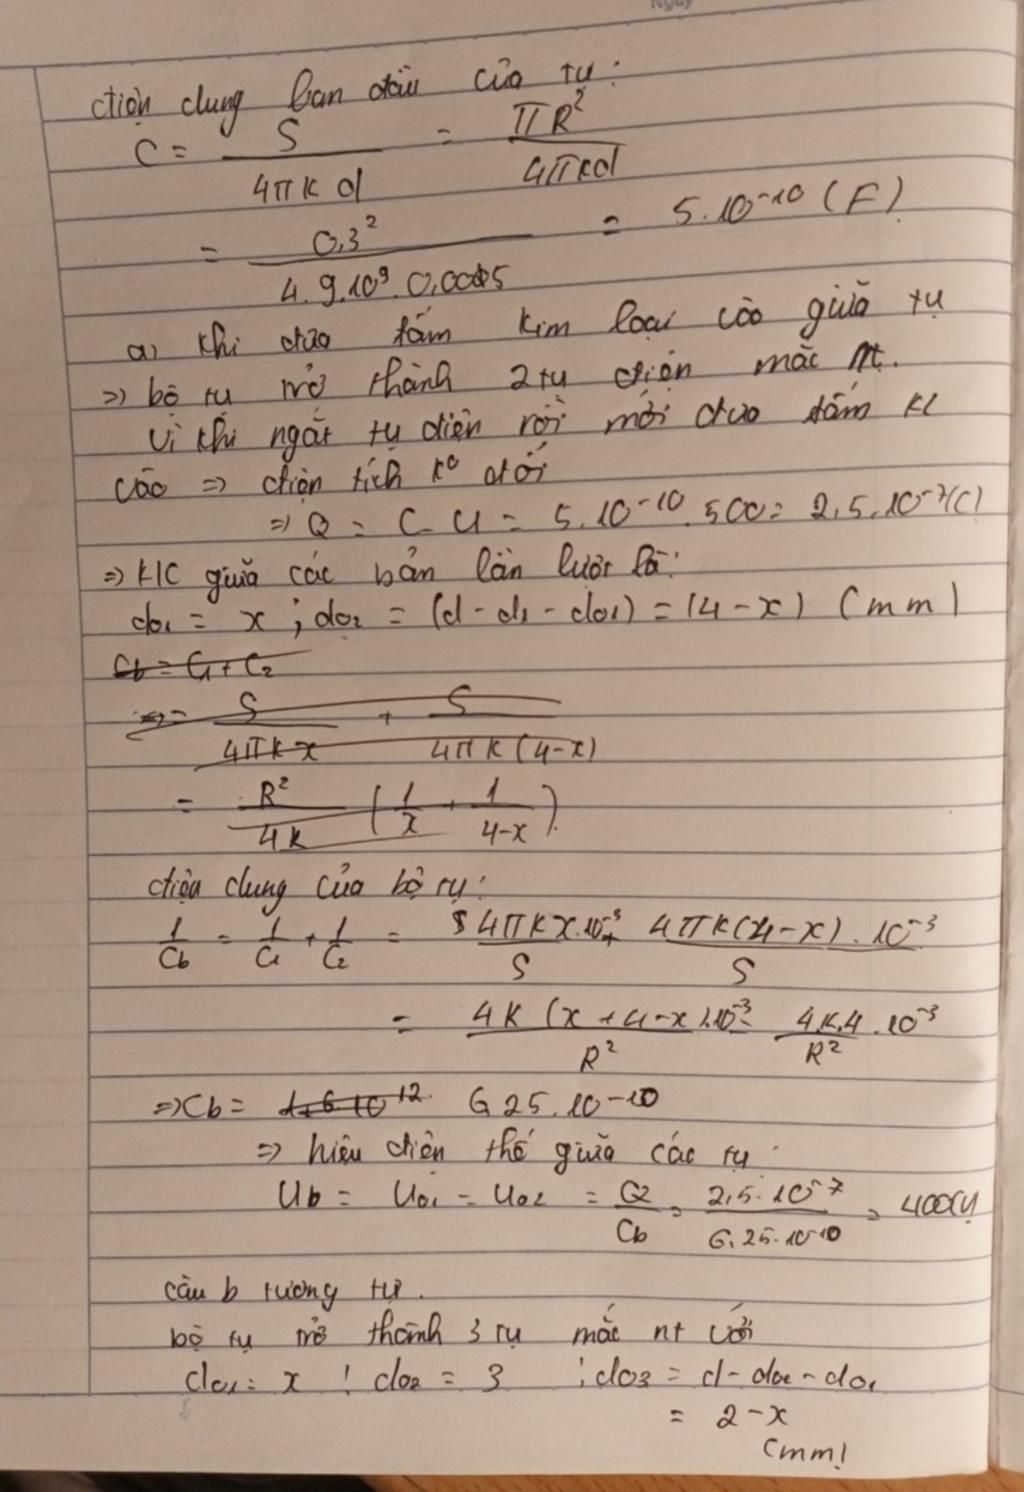 Ngày
điện dung ban đầu của tụ:
C = S / 4πkd = πR² / 4πkd
= 0,3² / 4.9.10⁹.0,005 = 5.10⁻¹⁰ (F).
a) khi đưa tấm kim loại vào giữa tụ
=> bộ tụ trở thành 2 tụ điện mắc nt.
Vì khi ngắt tụ điện rồi mới đưa tấm kl
vào => điện tích k⁰ đổi
=> Q = C.U = 5.10⁻¹⁰.500 = 2,5.10⁻⁷(C)
=> K/C giữa các bản lần lượt là:
d01 = x ; d02 = (d - d1 - d01) = (4 - x) (mm)
Cb = C1 + C2
=> = S / 4πkx + S / 4πk(4-x)
= R² / 4k (1/x + 1/4-x).
điện dung của bộ tụ:
1/Cb = 1/C1 + 1/C2 = 4πkx.10⁻³ / S + 4πk(4-x).10⁻³ / S
= 4k(x+4-x).10⁻³ / R² = 4k.4.10⁻³ / R²
=> Cb = 6,25.10⁻¹⁰
=> hiệu điện thế giữa các tụ
Ub = U01 = U02 = Q / Cb = 2,5.10⁻⁷ / 6,25.10⁻¹⁰ = 400(V)
câu b tương tự.
bộ tụ trở thành 3 tụ mắc nt với
d01 = x ; d02 = 3 ; d03 = d - d02 - d01
= 2 - x
(mm)